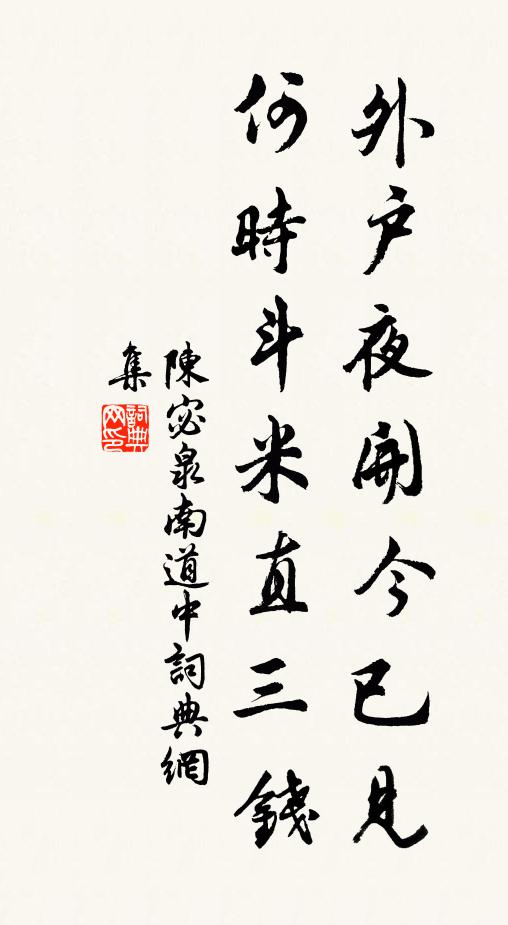 外戶夜開今已見
何時斗米直三錢
陳宓泉南道中詞典網
集
詞典
网印